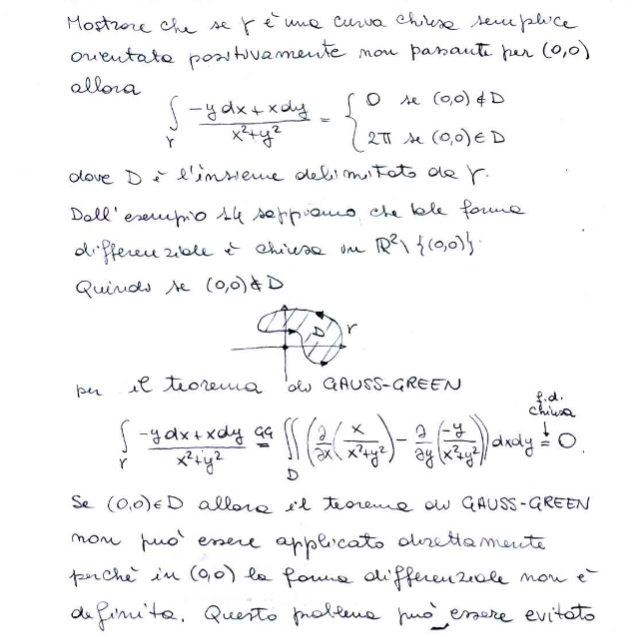 Mostrare che se γ è una curva chiusa semplice
orientata positivamente non passante per (0,0)
allora
∫_γ (-y dx + x dy)/(x²+y²) = { 0 se (0,0) ∉ D
2π se (0,0) ∈ D
dove D è l'insieme delimitato da γ.
Dall'esempio 14 sappiamo che tale forma
differenziale è chiusa in ℝ² \ {(0,0)}.
Quindi se (0,0) ∉ D
D γ
per il teorema di GAUSS-GREEN
f.d. chiusa ↓
∫_γ (-y dx + x dy)/(x²+y²) GG= ∬_D (∂/∂x (x/(x²+y²)) - ∂/∂y (-y/(x²+y²))) dxdy = 0.
Se (0,0) ∈ D allora il teorema di GAUSS-GREEN
non può essere applicato direttamente
perché in (0,0) la forma differenziale non è
definita. Questo problema può essere evitato